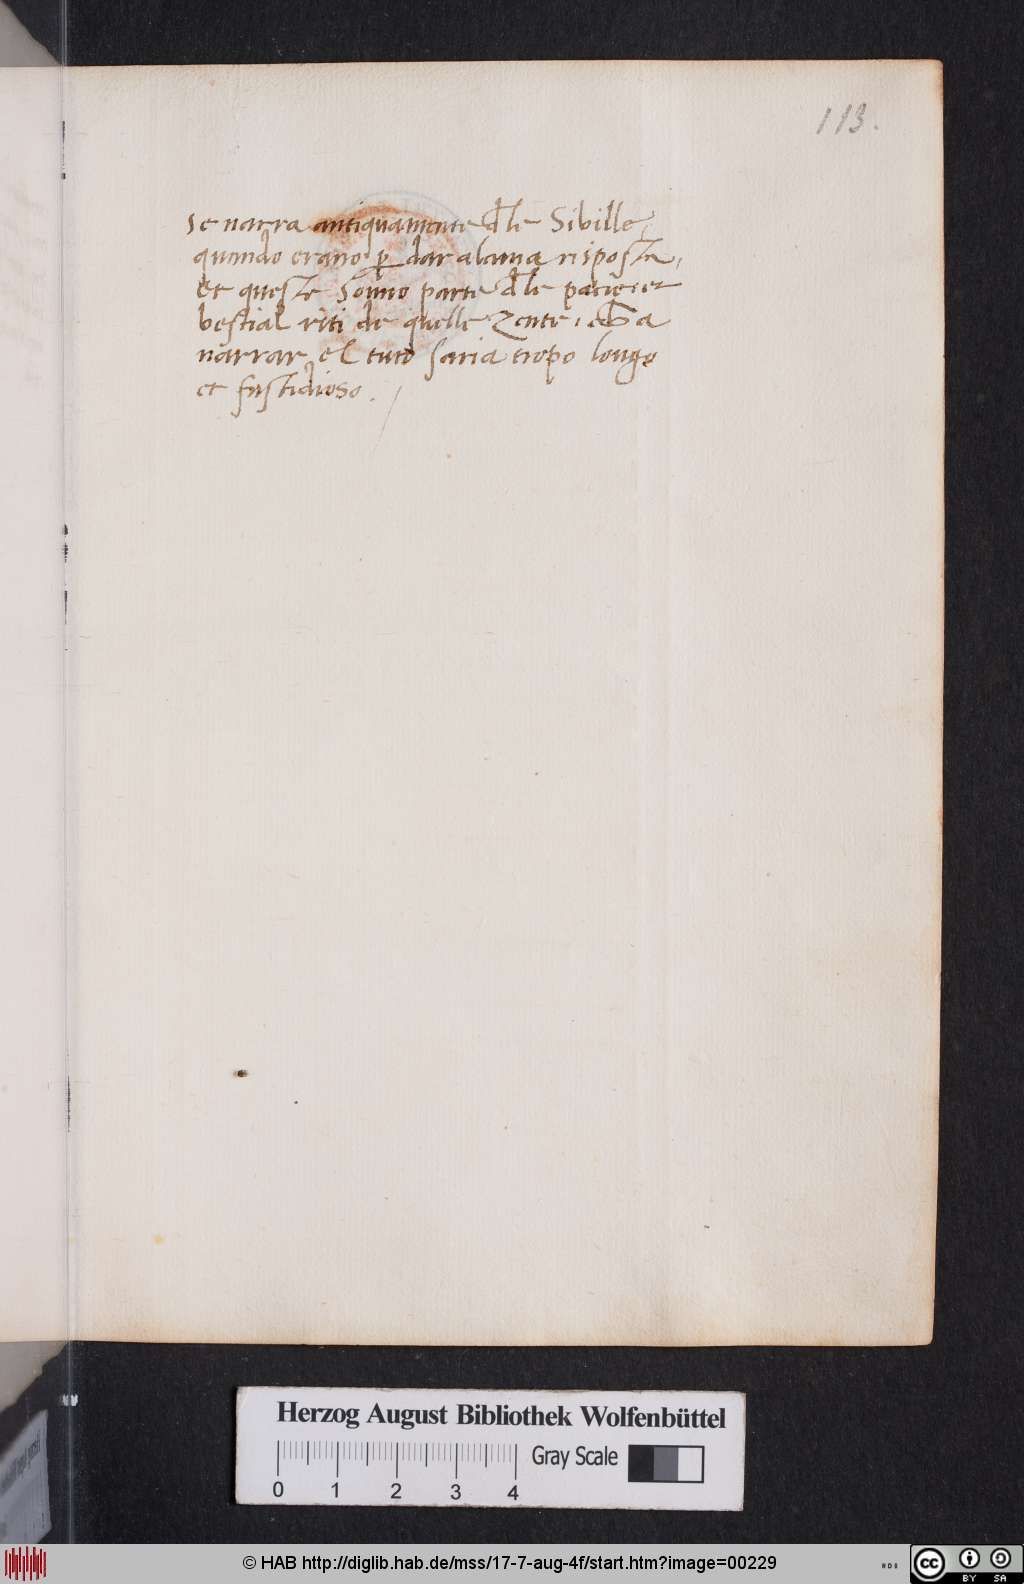 113.
se narra antiquamente dle Sibille,
quando erano p dar alcuna risposta,
et queste sonno parte dle pacie, et
bestial riti de quelle zente,
narrar el tuto saria tropo longo
et fastidioso.
Herzog August Bibliothek Wolfenbüttel
Gray Scale
0 1 2 3 4
© HAB http://diglib.hab.de/mss/17-7-aug-4f/start.htm?image=00229
cc BY SA